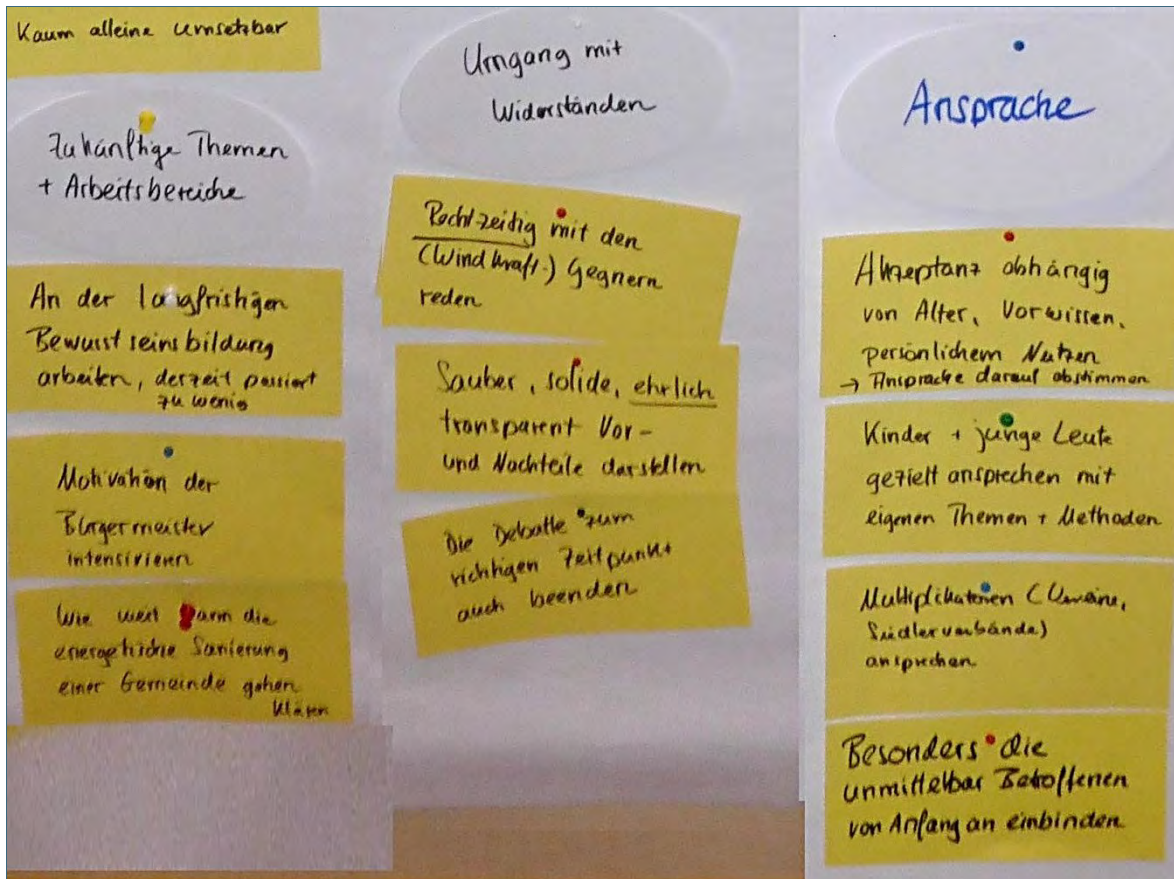 Kaum alleine umsetzbar
Zukünftige Themen
+ Arbeitsbereiche
An der langfristigen
Bewusstseinsbildung
arbeiten, derzeit passiert
zu wenig
Motivation der
Bürgermeister
intensivieren
Wie weit kann die
energetische Sanierung
einer Gemeinde gehen
klären
Umgang mit
Widerständen
Rechtzeitig mit den
(Windkraft-) Gegnern
reden
Sauber, solide, ehrlich
transparent Vor-
und Nachteile darstellen
Die Debatte zum
richtigen Zeitpunkt
auch beenden
Ansprache
Akzeptanz abhängig
von Alter, Vorwissen,
persönlichem Nutzen
→ Ansprache darauf abstimmen
Kinder + junge Leute
gezielt ansprechen mit
eigenen Themen + Methoden
Multiplikatoren (Vereine,
Siedlerverbände)
ansprechen
Besonders die
unmittelbar Betroffenen
von Anfang an einbinden